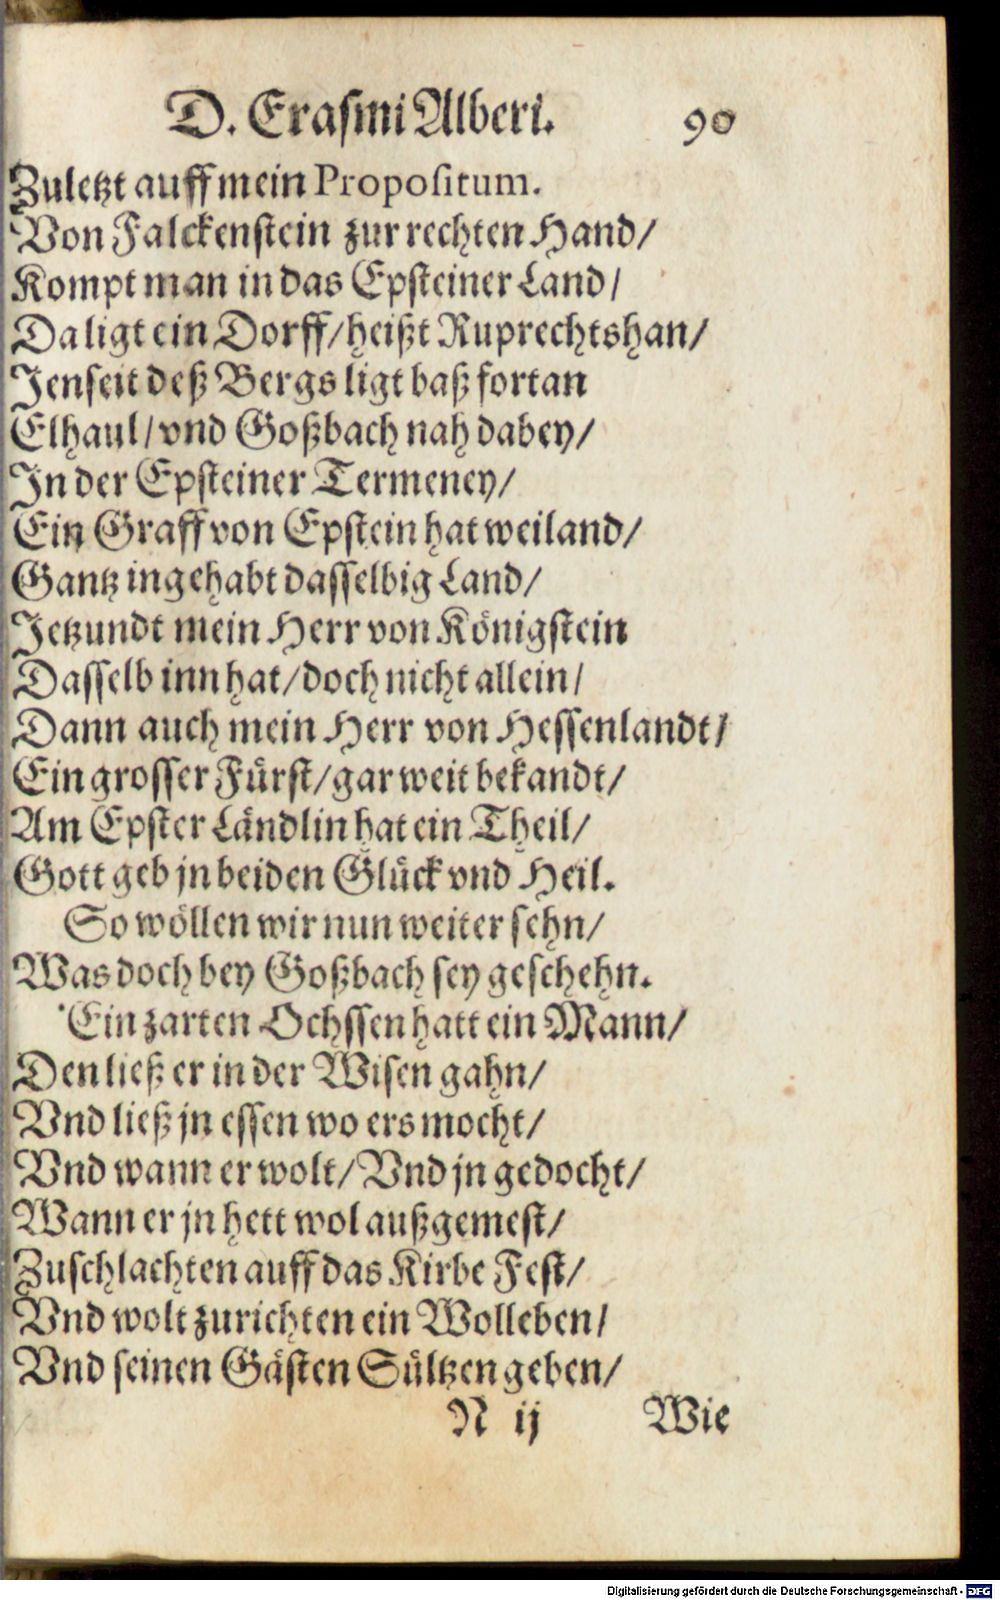 D. Erasmi Alberi. 90
Zuletzt auff mein Propositum.
Von Falckenstein zur rechten Hand/
Kompt man in das Epsteiner Land/
Da ligt ein Dorff/heißt Ruprechtshan/
Jenseit deß Bergs ligt baß fortan
Elhaul/vnd Goßbach nah dabey/
In der Epsteiner Termeney/
Ein Graff von Epstein hat weiland/
Gantz ingehabt dasselbig Land/
Jetzundt mein Herr von Königstein
Dasselb inn hat/doch nicht allein/
Dann auch mein Herr von Hessenlandt/
Ein grosser Fürst/gar weit bekandt/
Am Epster Ländlin hat ein Theil/
Gott geb jn beiden Glück vnd Heil.
So wöllen wir nun weiter sehn/
Was doch bey Goßbach sey geschehn.
Ein zarten Ochssen hatt ein Mann/
Den ließ er in der Wisen gahn/
Vnd ließ jn essen wo ers mocht/
Vnd wann er wolt/Vnd jn gedocht/
Wann er jn hett wol außgemest/
Zuschlachten auff das Kirbe Fest/
Vnd wolt zurichten ein Wolleben/
Vnd seinen Gästen Sültzen geben/
N ij Wie
Digitalisierung gefördert durch die Deutsche Forschungsgemeinschaft - DFG